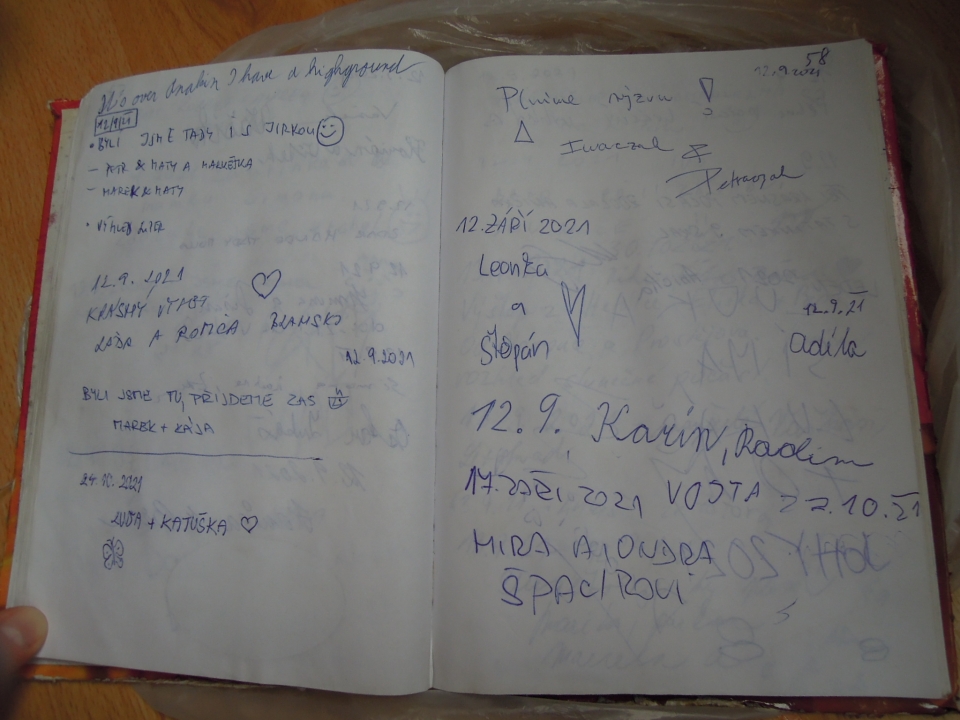 It's over Anakin I have a highground
12/9/21
• BYLI JSME TADY I S JIRKOU
- PETR & MATY A MARKÉTKA
- MAREK & MATY
• VÝHLED
12.9. 2021
KRÁSNÝ VÝLET
LÁĎA A ROMČA BLANSKO
12.9.2021
BYLI JSME TU, PŘIJDEME ZAS
MAREK + KÁJA
24. 2021
+ KATUŠKA
58
12.9.2021
Plníme výzvu !
Z
12. ZÁŘÍ 2021
Leonka
a
Štěpán
12.9.21
Adéla
12.9. Karin, Radim
17. ZÁŘÍ 2021 VOJTA 27.10.21
MÍRA A ONDRA
ŠPACÍROVI